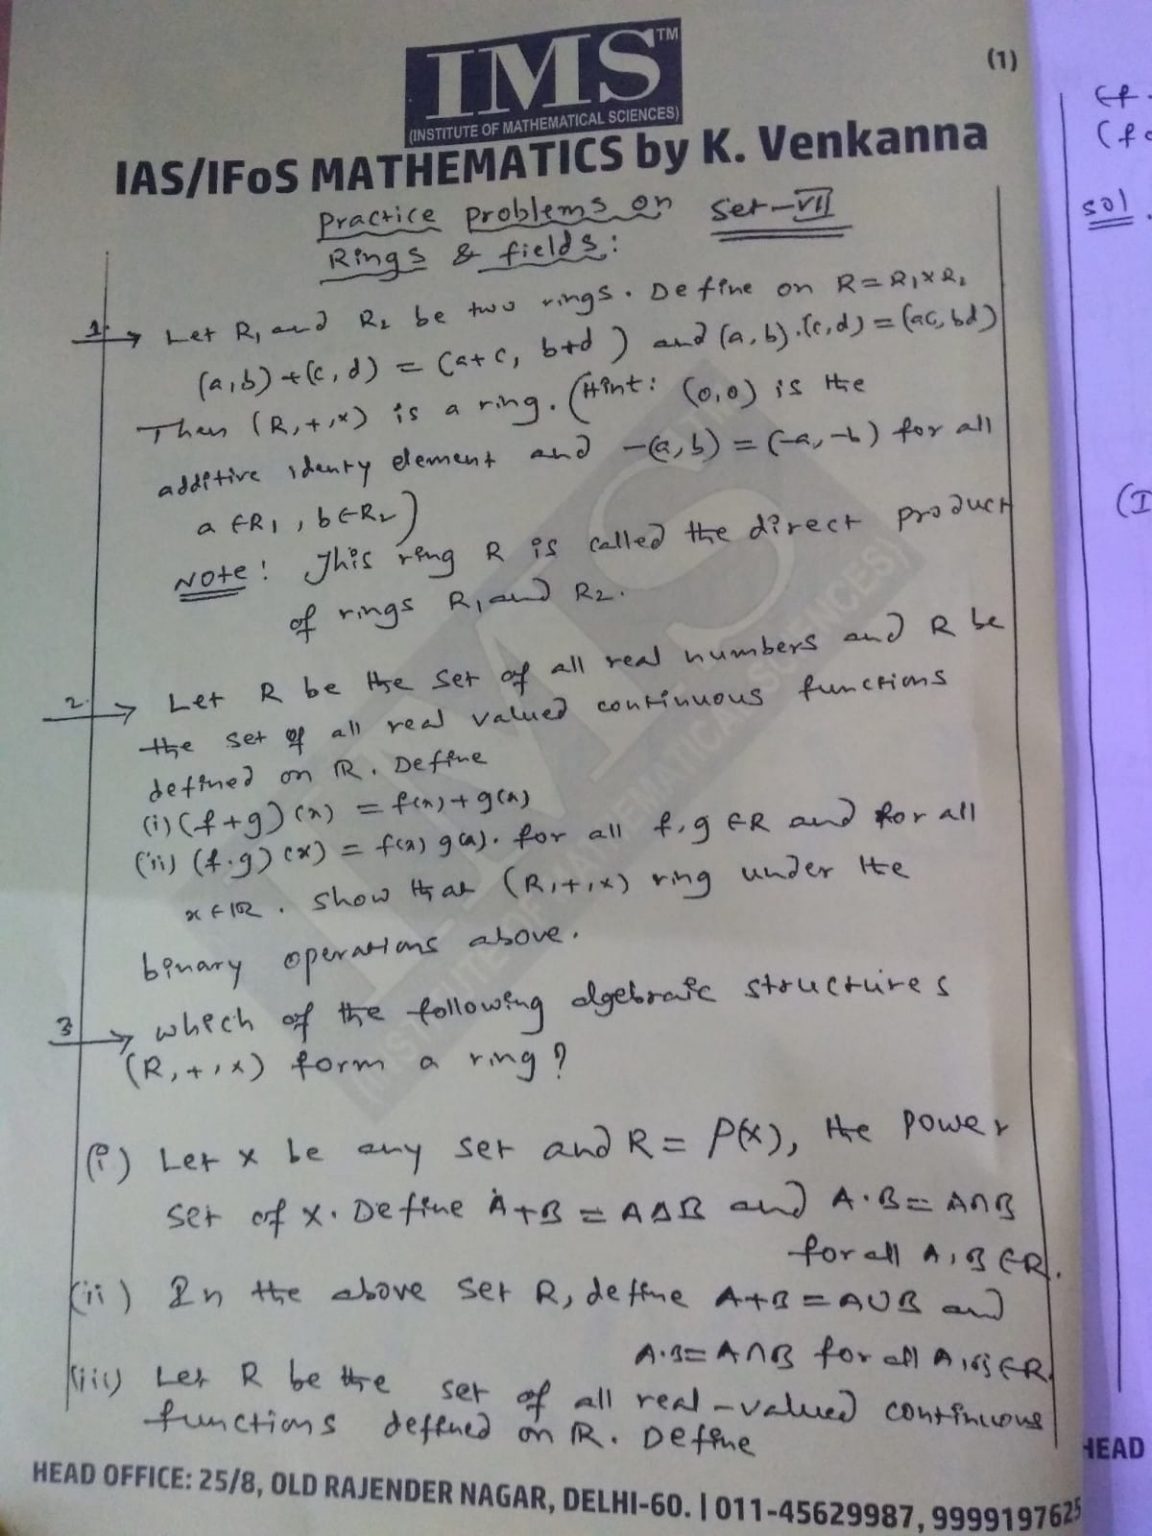 IMS TM
(INSTITUTE OF MATHEMATICAL SCIENCES)
(1)
IAS/IFoS MATHEMATICS by K. Venkanna
Practice problems on Set-VII
Rings & fields:
1. → Let R₁ and R₂ be two rings. Define on R=R₁×R₂
(a,b)+(c,d) = (a+c, b+d) and (a,b).(c,d)=(ac,bd)
Then (R,+,×) is a ring. (Hint: (0,0) is the
additive identy element and -(a,b) = (-a,-b) for all
a∈R₁, b∈R₂)
Note: This ring R is called the direct product
of rings R₁ and R₂.
2. → Let R be the set of all real numbers and R be
the set of all real valued continuous functions
defined on ℝ. Define
(i) (f+g)(x) = f(x)+g(x)
(ii) (f.g)(x) = f(x) g(x). for all f,g∈R and for all
x∈ℝ. show that (R,+,×) ring under the
binary operations above.
3 → which of the following algebraic structures
(R,+,×) form a ring?
(i) Let x be any set and R= P(X), the power
set of X. Define A+B = AΔB and A.B= A∩B
for all A,B∈R.
(ii) In the above set R, define A+B=A∪B and
A.B=A∩B for all A,B∈R
(iii) Let R be the set of all real-valued continuous
functions defined on ℝ. Define
HEAD OFFICE: 25/8, OLD RAJENDER NAGAR, DELHI-60. | 011-45629987, 9999197625
sol.
(I
HEAD